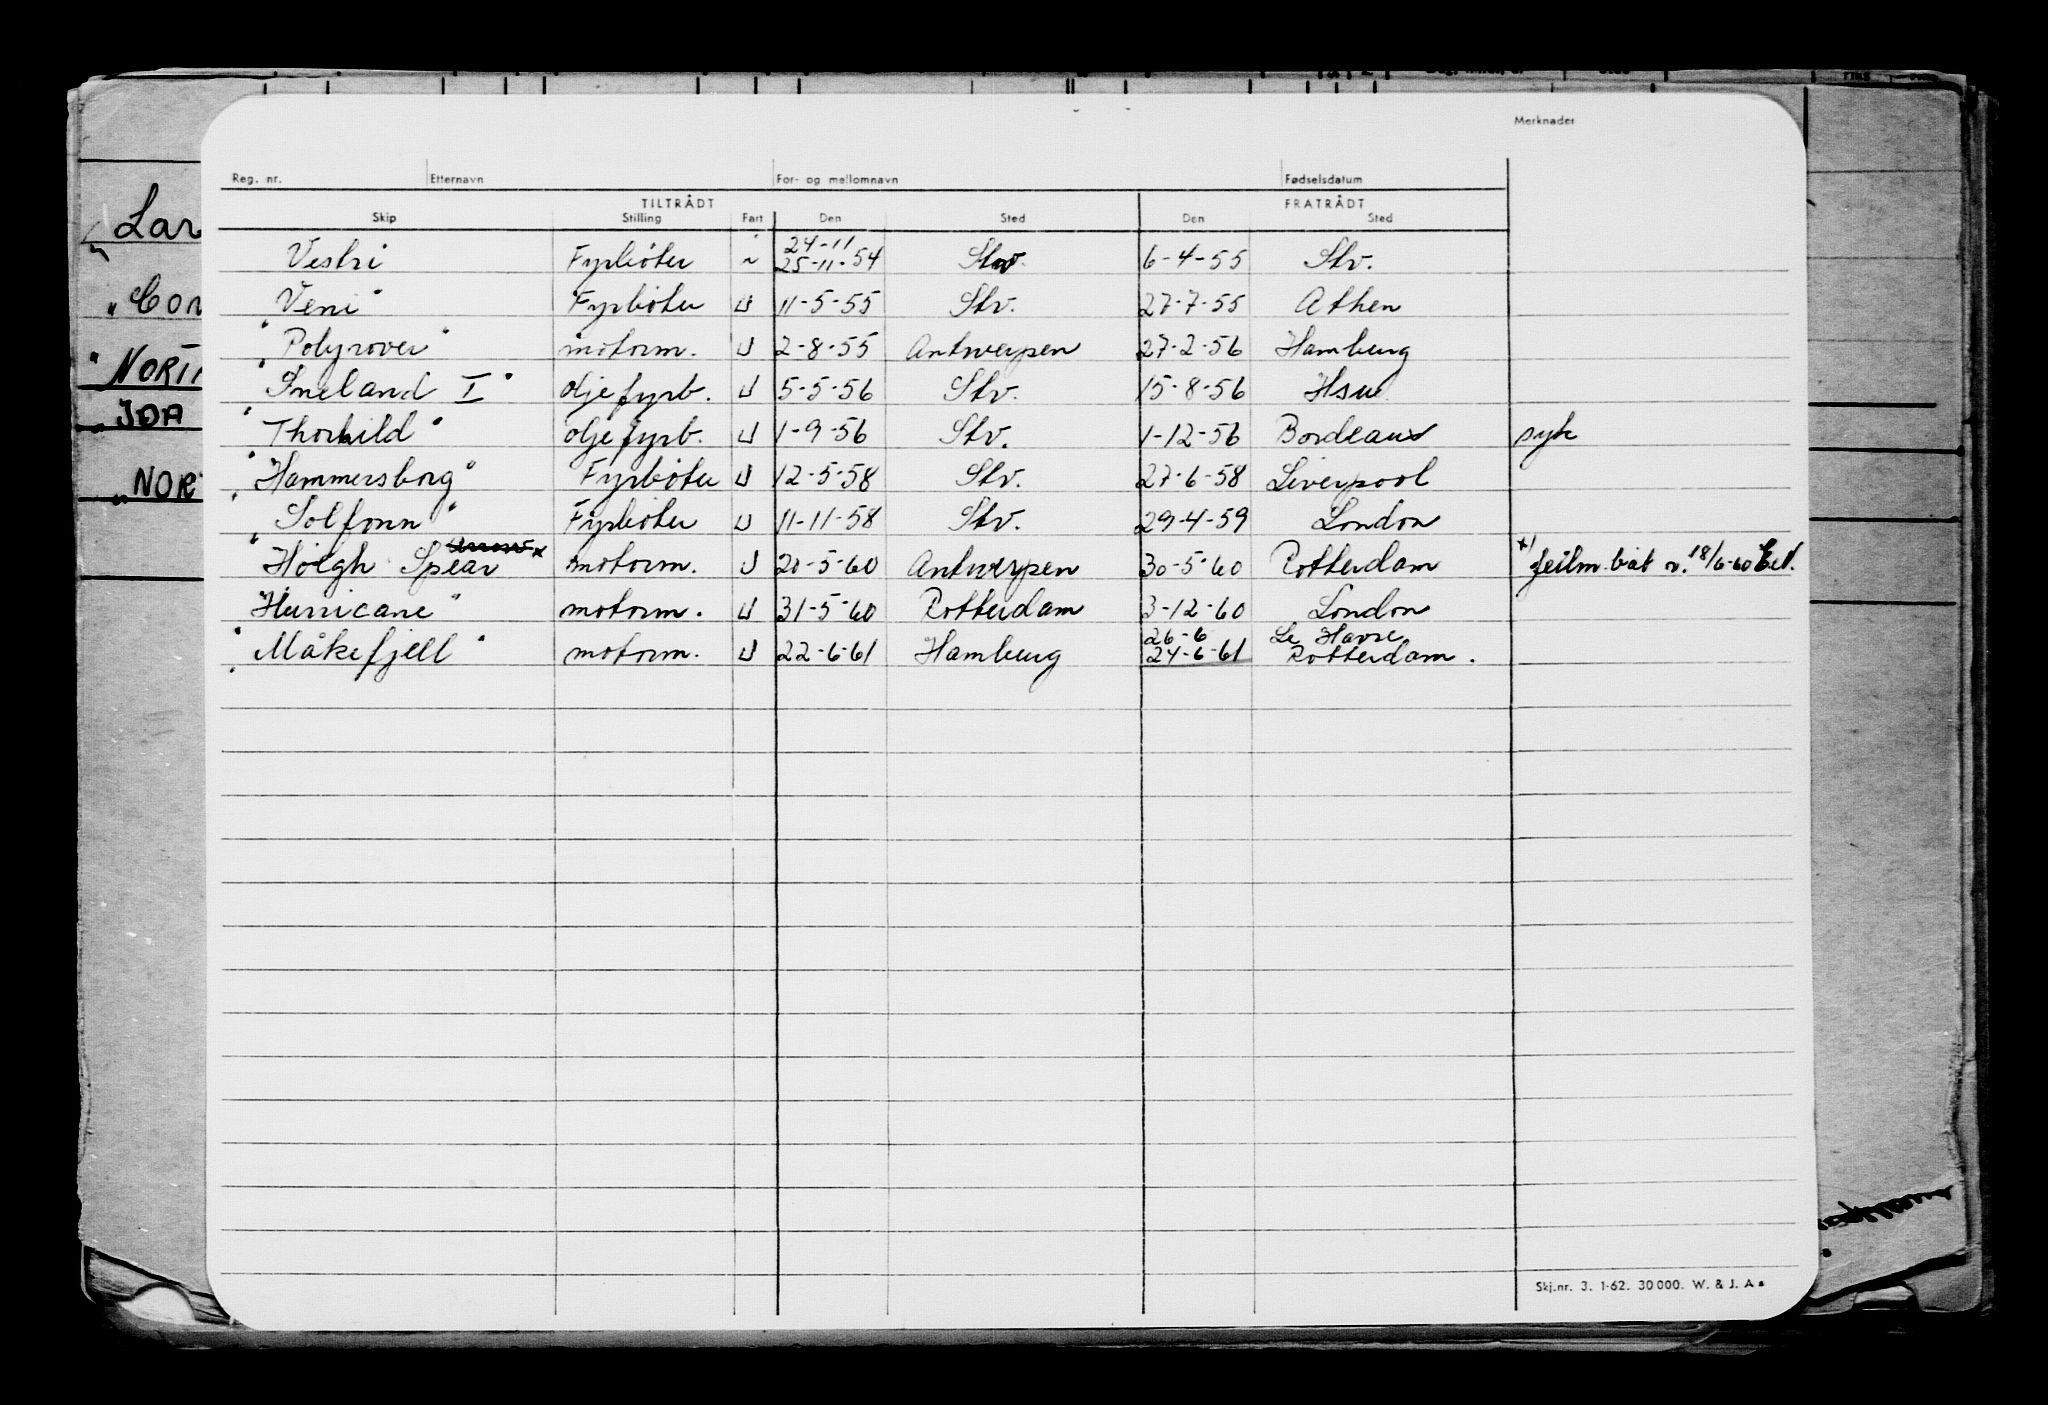 Merknader
Reg. nr. Etternavn For- og mellomnavn Fødselsdatum
TILTRÅDT FRATRÅDT
Skip Stilling Fart Den Sted Den Sted
24-11
Vestri Fyrbøter 25-11-54 Stv. 6-4-55 Stv.
Veni" Fyrbøter U 11-5-55 Stv. 27-7-55 Athen
"Polyrover" motorm. U 2-8-55 Antwerpen 27-2-56 Hamburg
"Ineland I" oljefyrb. U 5-5-56 Stv. 15-8-56
"Thorhild" oljefyrb. U 1-9-56 Stv. 1-12-56 Bordeaux syk
"Hammersborg" Fyrbøter U 12-5-58 Stv. 27-6-58 Liverpool
"Solfonn" Fyrbøter U 11-11-58 Stv. 29-4-59 London
"Høegh Spear x motorm. U 20-5-60 Antwerpen 30-5-60 Rotterdam x) feilm. båt 18/6-60
Hurricane" motorm. U 31-5-60 Rotterdam 3-12-60 London
26-6 Le Havre
"Måkefjell" motorm. U 22-6-61 Hamburg 24-6-61 Rotterdam.
Lar
"Con
"NORT
JOA
"NOR
Skj.nr. 3. 1-62. 30000. W. & J. A s